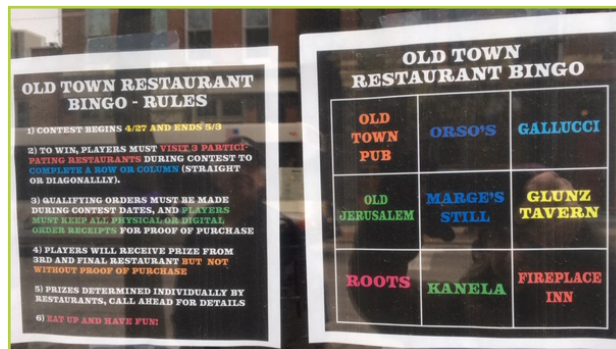 OLD TOWN RESTAURANT
BINGO - RULES
1) CONTEST BEGINS 4/27 AND ENDS 5/3
2) TO WIN, PLAYERS MUST VISIT 3 PARTICI-
PATING RESTAURANTS DURING CONTEST TO
COMPLETE A ROW OR COLUMN (STRAIGHT
OR DIAGONALLLY).
3) QUALIFYING ORDERS MUST BE MADE
DURING CONTEST DATES, AND PLAYERS
MUST KEEP ALL PHYSICAL OR DIGITAL
ORDER RECEIPTS FOR PROOF OF PURCHASE
4) PLAYERS WILL RECEIVE PRIZE FROM
3RD AND FINAL RESTAURANT BUT NOT
WITHOUT PROOF OF PURCHASE
5) PRIZES DETERMINED INDIVIDUALLY BY
RESTAURANTS, CALL AHEAD FOR DETAILS
6) EAT UP AND HAVE FUN!
OLD TOWN
RESTAURANT BINGO
OLD
TOWN
PUB
ORSO'S
GALLUCCI
OLD
JERUSALEM
MARGE'S
STILL
GLUNZ
TAVERN
ROOTS
KANELA
FIREPLACE
INN